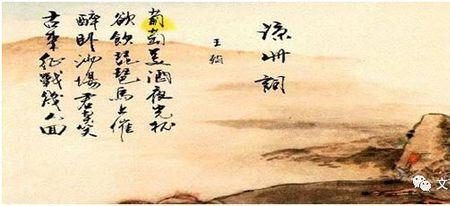 涼州詞
王翰
葡萄美酒夜光杯
欲飲琵琶馬上催
醉卧沙場君莫笑
古來征戰幾人回
文